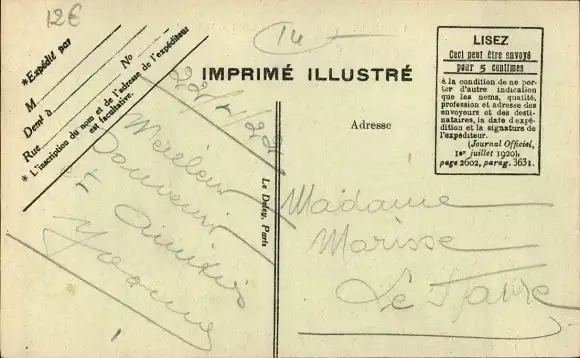 12€
*Expédié par
M
No
Demt à
Rue
* L'inscription du nom et de l'adresse de l'expéditeur
est facultative.
14
IMPRIMÉ ILLUSTRÉ
LISEZ
Ceci peut être envoyé
pour 5 centimes
à la condition de ne por-
ter d'autre indication
que les noms, qualité,
profession et adresse des
envoyeurs et des desti-
nataires, la date d'expé-
dition et la signature de
l'expéditeur.
(Journal Officiel,
1er juillet 1920),
page 2602, parag. 3631.
Adresse
Meilleur
Souvenir
et Amitiés
Yvonne
Le Deley, Paris
Madame
Marisse
Le Havre